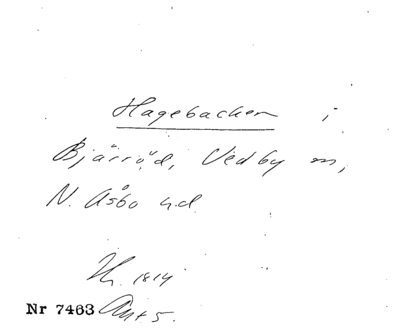 Hagebacken i
Bjärröd, Vedby sn,
N. Åsbo h.d.
1814
Nr 7463